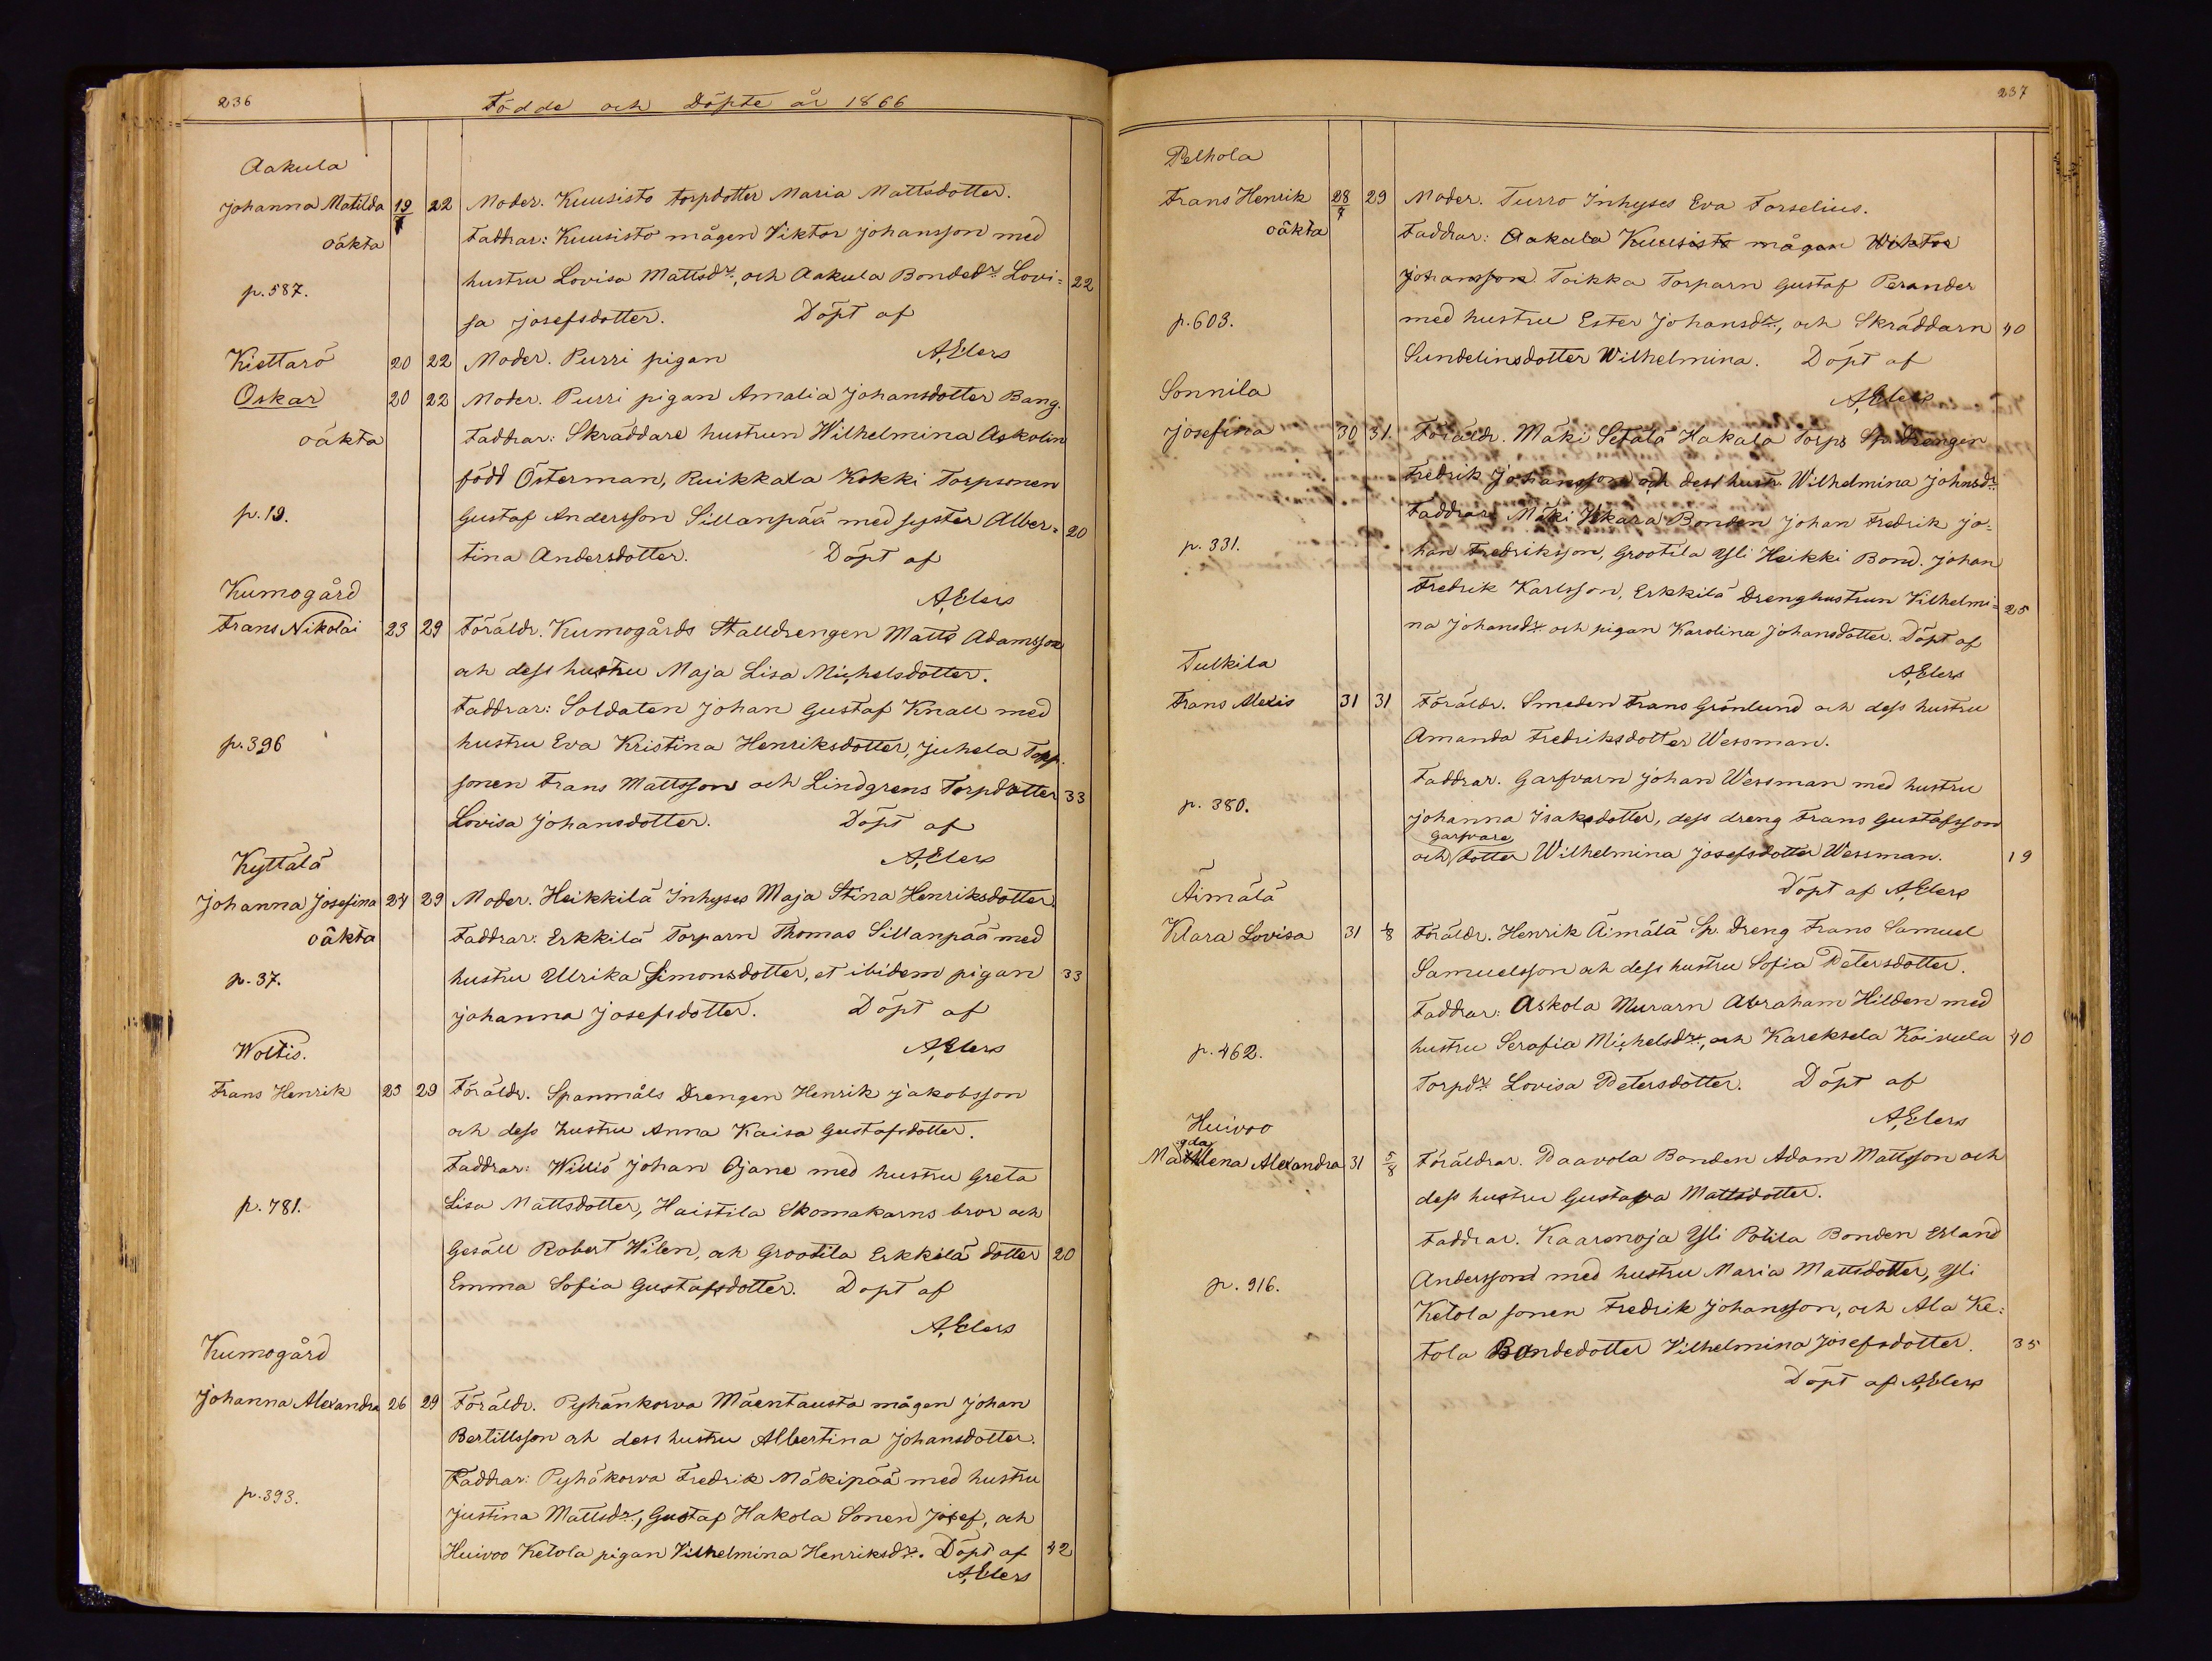 236
Födde och Döpte år 1866
Aakula
Johanna Matilda 19/7 22 Moder. Kuusisto torpdotter Maria Mattsdotter.
oäkta Faddrar: Kuusisto mågen Viktor Johansson med
hustru Lovisa Mattsdr, och Aakula Bondedr Lovi= 22
p. 587.
sa Josefsdotter. Döpt af
AElers
Kiettarö 20 22 Moder. Purri pigan
Oskar 20 22 Moder. Purri pigan Amalia Johansdotter Bang.
oäkta Faddrar: Skräddare hustrun Wilhelmina Askolin
född Österman, Ruikkala Kokki Torpsonen
p. 19. Gustaf Andersson Sillanpää med syster Alber= 20
tina Andersdotter. Döpt af
AElers
Kumogård
Frans Nikolai 23 29 Föräldr. Kumogårds Stalldrengen Matts Adamsson
och dess hustru Maja Lisa Michelsdotter.
Faddrar: Soldaten Johan Gustaf Knall med
p. 396 hustru Eva Kristina Henriksdotter, Juhela Torp-
sonen Frans Mattsson och Lindgrens Torpdotter 33
Lovisa Johansdotter. Döpt af
AElers
Kyttälä
Johanna Josefina 24 29 Moder. Heikkilä Inhyses Maja Stina Henriksdotter
oäkta Faddrar: Erkkilä Torparn Thomas Sillanpää med
p. 37. hustru Ulrika Simonsdotter, et ibidem pigan 33
Johanna Josefsdotter. Döpt af
AElers
Woltis.
Frans Henrik 23 29 Föräldr. Spanmåls Drengen Henrik Jakobsson
och dess hustru Anna Kaisa Gustafsdotter.
Faddrar: Williö Johan Ojane med hustru Greta
p. 781. Lisa Mattsdotter, Haistila Skomakarns bror och
Gesäll Robert Wilen, och Grootila Erkkilä dotter 20
Emma Sofia Gustafsdotter. Döpt af
AElers
Kumogård
Johanna Alexandra 26 29 Föräldr. Pyhänkorva Mäentausta mågen Johan
Bertillsson och dess hustru Albertina Johansdotter.
Faddrar: Pyhäkorva Fredrik Mäkipää med hustru
p. 393.
Justina Mattsdr, Gustaf Hakola Sonen Josef, och
Huivoo Ketola pigan Vilhelmina Henriksdr. Döpt af 42
AElers
237
Pelhola
Frans Henrik 28/7 29 Moder. Turro Inhyses Eva Forselius.
oäkta Faddrar: Aakula Kuusisto mågen Wiktor
Johansson Toikka Torparn Gustaf Perander
p. 603. med hustru Ester Johansdr, och Skräddarn 40
Sundelinsdotter Wilhelmina. Döpt af
AElers
Sonnila
Josefina 30 31. Föräldr. Mäki Setälä Hakala Torps Sp. Drengen
Fredrik Johansson och dess hustr. Wilhelmina Johnsdr.
Faddrar: Mäki Bonden Johan Fredrik Jo-
p. 331. han Fredriksson, Grootila Yli Heikki Bond. Johan
Fredrik Karlsson, Erkkilä Drenghustrun Vilhelmi= 25
na Johansdr och pigan Karolina Johansdotter. Döpt af
AElers
Tulkila
Frans Alexis 31 31 Föräldr. Smeden Frans Grönlund och dess hustru
Amanda Fredriksdotter Wessman.
Faddrar. Garfvarn Johan Wessman med hustru
p. 380.
Johanna Isaksdotter, dess dreng Frans Gustafsson
garfvare
och dotter Wilhelmina Josefsdotter Wessman. 19
Döpt af AElers
Äimälä
Klara Lovisa 31 1/8 Föräldr. Henrik Äimälä Sp. Dreng Frans Samuel
Samuelsson och dess hustru Sofia Petersdotter.
Faddrar: Askola Murarn Abraham Hilden med
p. 462. hustru Serafia Michelsdr, och Kareksela Koivula 40
Torpdr Lovisa Petersdotter. Döpt af
AElers
Huivoo
gda
Mathlena Alexandra 31 5/8 Föräldrar. Paavola Bonden Adam Mattsson och
dess hustru Gustava Mattsdotter.
Faddrar. Kaaronoja Yli Potila Bonden Erland
p. 916.
Andersson med hustru Maria Mattsdotter, Yli
Ketola sonen Fredrik Johansson, och Ala Ke=
tola Bondedotter Vilhelmina Josefsdotter. 35
Döpt af AElers